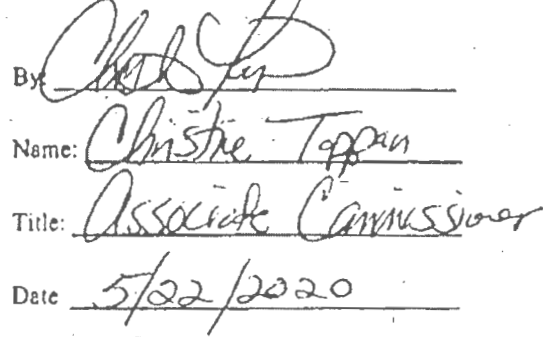 By:
Name: Christie Tappan
Title: Associate Commissioner
Date 5/22/2020